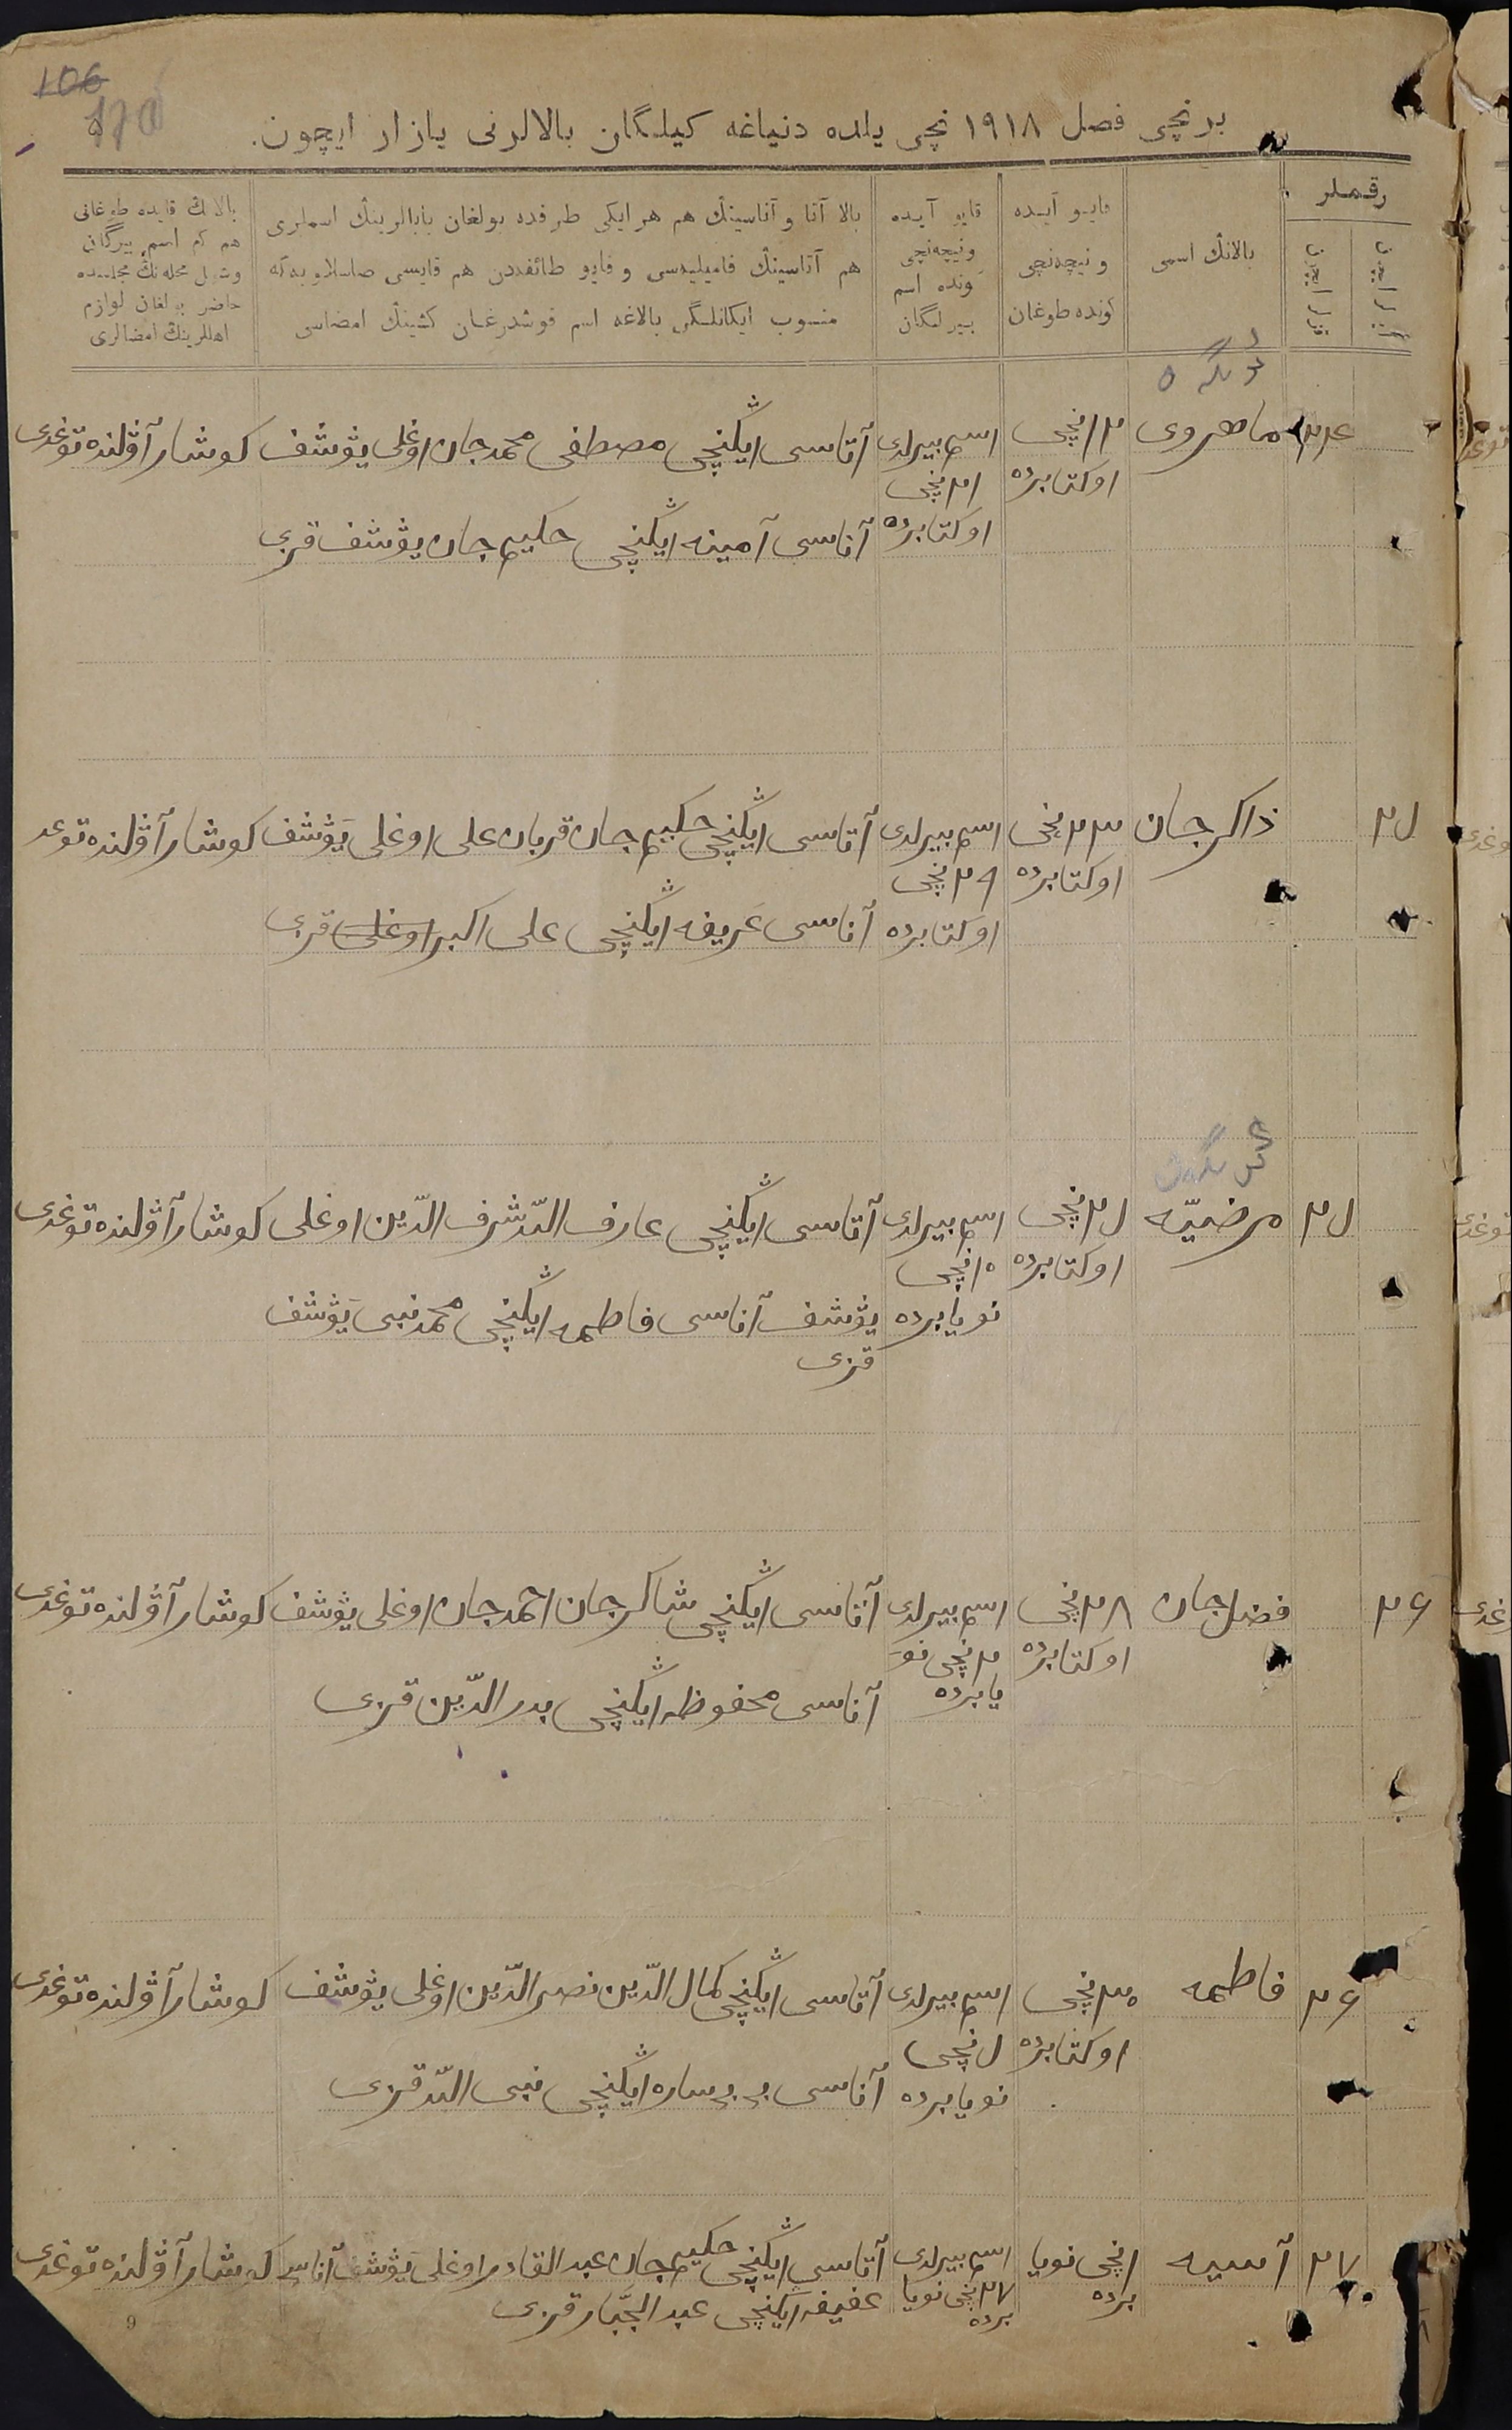 106
برنچی فصل ١٩١٨ نچی یلده دنیاغه کیلگان بالالرنی یازار ایچون.
رقملر
بالانڭ اسمی
قایو آیده
و نیچه‌نچی
کونده طوغان
قایو آیده
و نیچه‌نچی
کونده اسم
بیرلگان
بالا آتا و آناسینڭ هم هر ایکی طرفده بولغان بابالرینڭ اسملری
هم آتاسینڭ فامیلیه‌سی و قایو طائفه‌دن هم قایسی صاصلاویه‌گه
منسوب ایکانلگی بالاغه اسم قوشدرغان کشینڭ امضاسی
بالانڭ قایده طوغانی
هم کم اسم بیرگان
وشول محله‌نڭ مجلسنده
حاضر بولغان لوازم
اهللرینڭ امضالری
٢٤ ماهروی ١٢نچی اوکتابرده اسم بیرلدی ٢١نچی اوکتابرده آتاسی ایگنچی مصطفی محمدجان اوغلی یوشف کوشار آولنده توغدی
آناسی آمینه ایگنچی حکیم جان یوشف قزی
٢٥ ذاکر جان ٢٣نچی اوکتابرده اسم بیرلدی ٢٩نچی اوکتابرده آتاسی ایگنچی حکیم جان قربان علی اوغلی یوشف کوشار آولنده توغد
آناسی عریفه ایگنچی علی اکبر اوغلی قزی
٢٥ مرضیّه ٢٥نچی اوکتابرده اسم بیرلدی ١٠نچی نویابرده آتاسی ایگنچی عارف اللّه شرف الدّین اوغلی کوشار آولنده توغدی
یوشف آناسی فاطمه ایگنچی محمد نبی یوشف
قزی
٢٦ فضل جان ٢٨نچی اوکتابرده اسم بیرلدی ٢نچی نویابرده آتاسی ایگنچی شاکر جان احمد جان اوغلی یوشف کوشار آولنده توغدی
آناسی محفوظه ایگنچی بدر الدّین قزی
٢٦ فاطمه ٣٠نچی اوکتابرده اسم بیرلدی ٥نچی نویابرده آتاسی ایگنچی کمال الدّین نصر الدّین اوغلی یوشف کوشار آولنده توغدی
آناسی بی بی ساره ایگنچی نبی اللّه قزی
٢٧ آسیه ١نچی نویابرده اسم بیرلدی ٢٧نچی نویابرده آتاسی ایگنچی حکیم جان عبد القادر اوغلی یوشف آناسی کوشار آولنده توغدی
عفیفه ایگنچی عبد الجبّار قزی
9